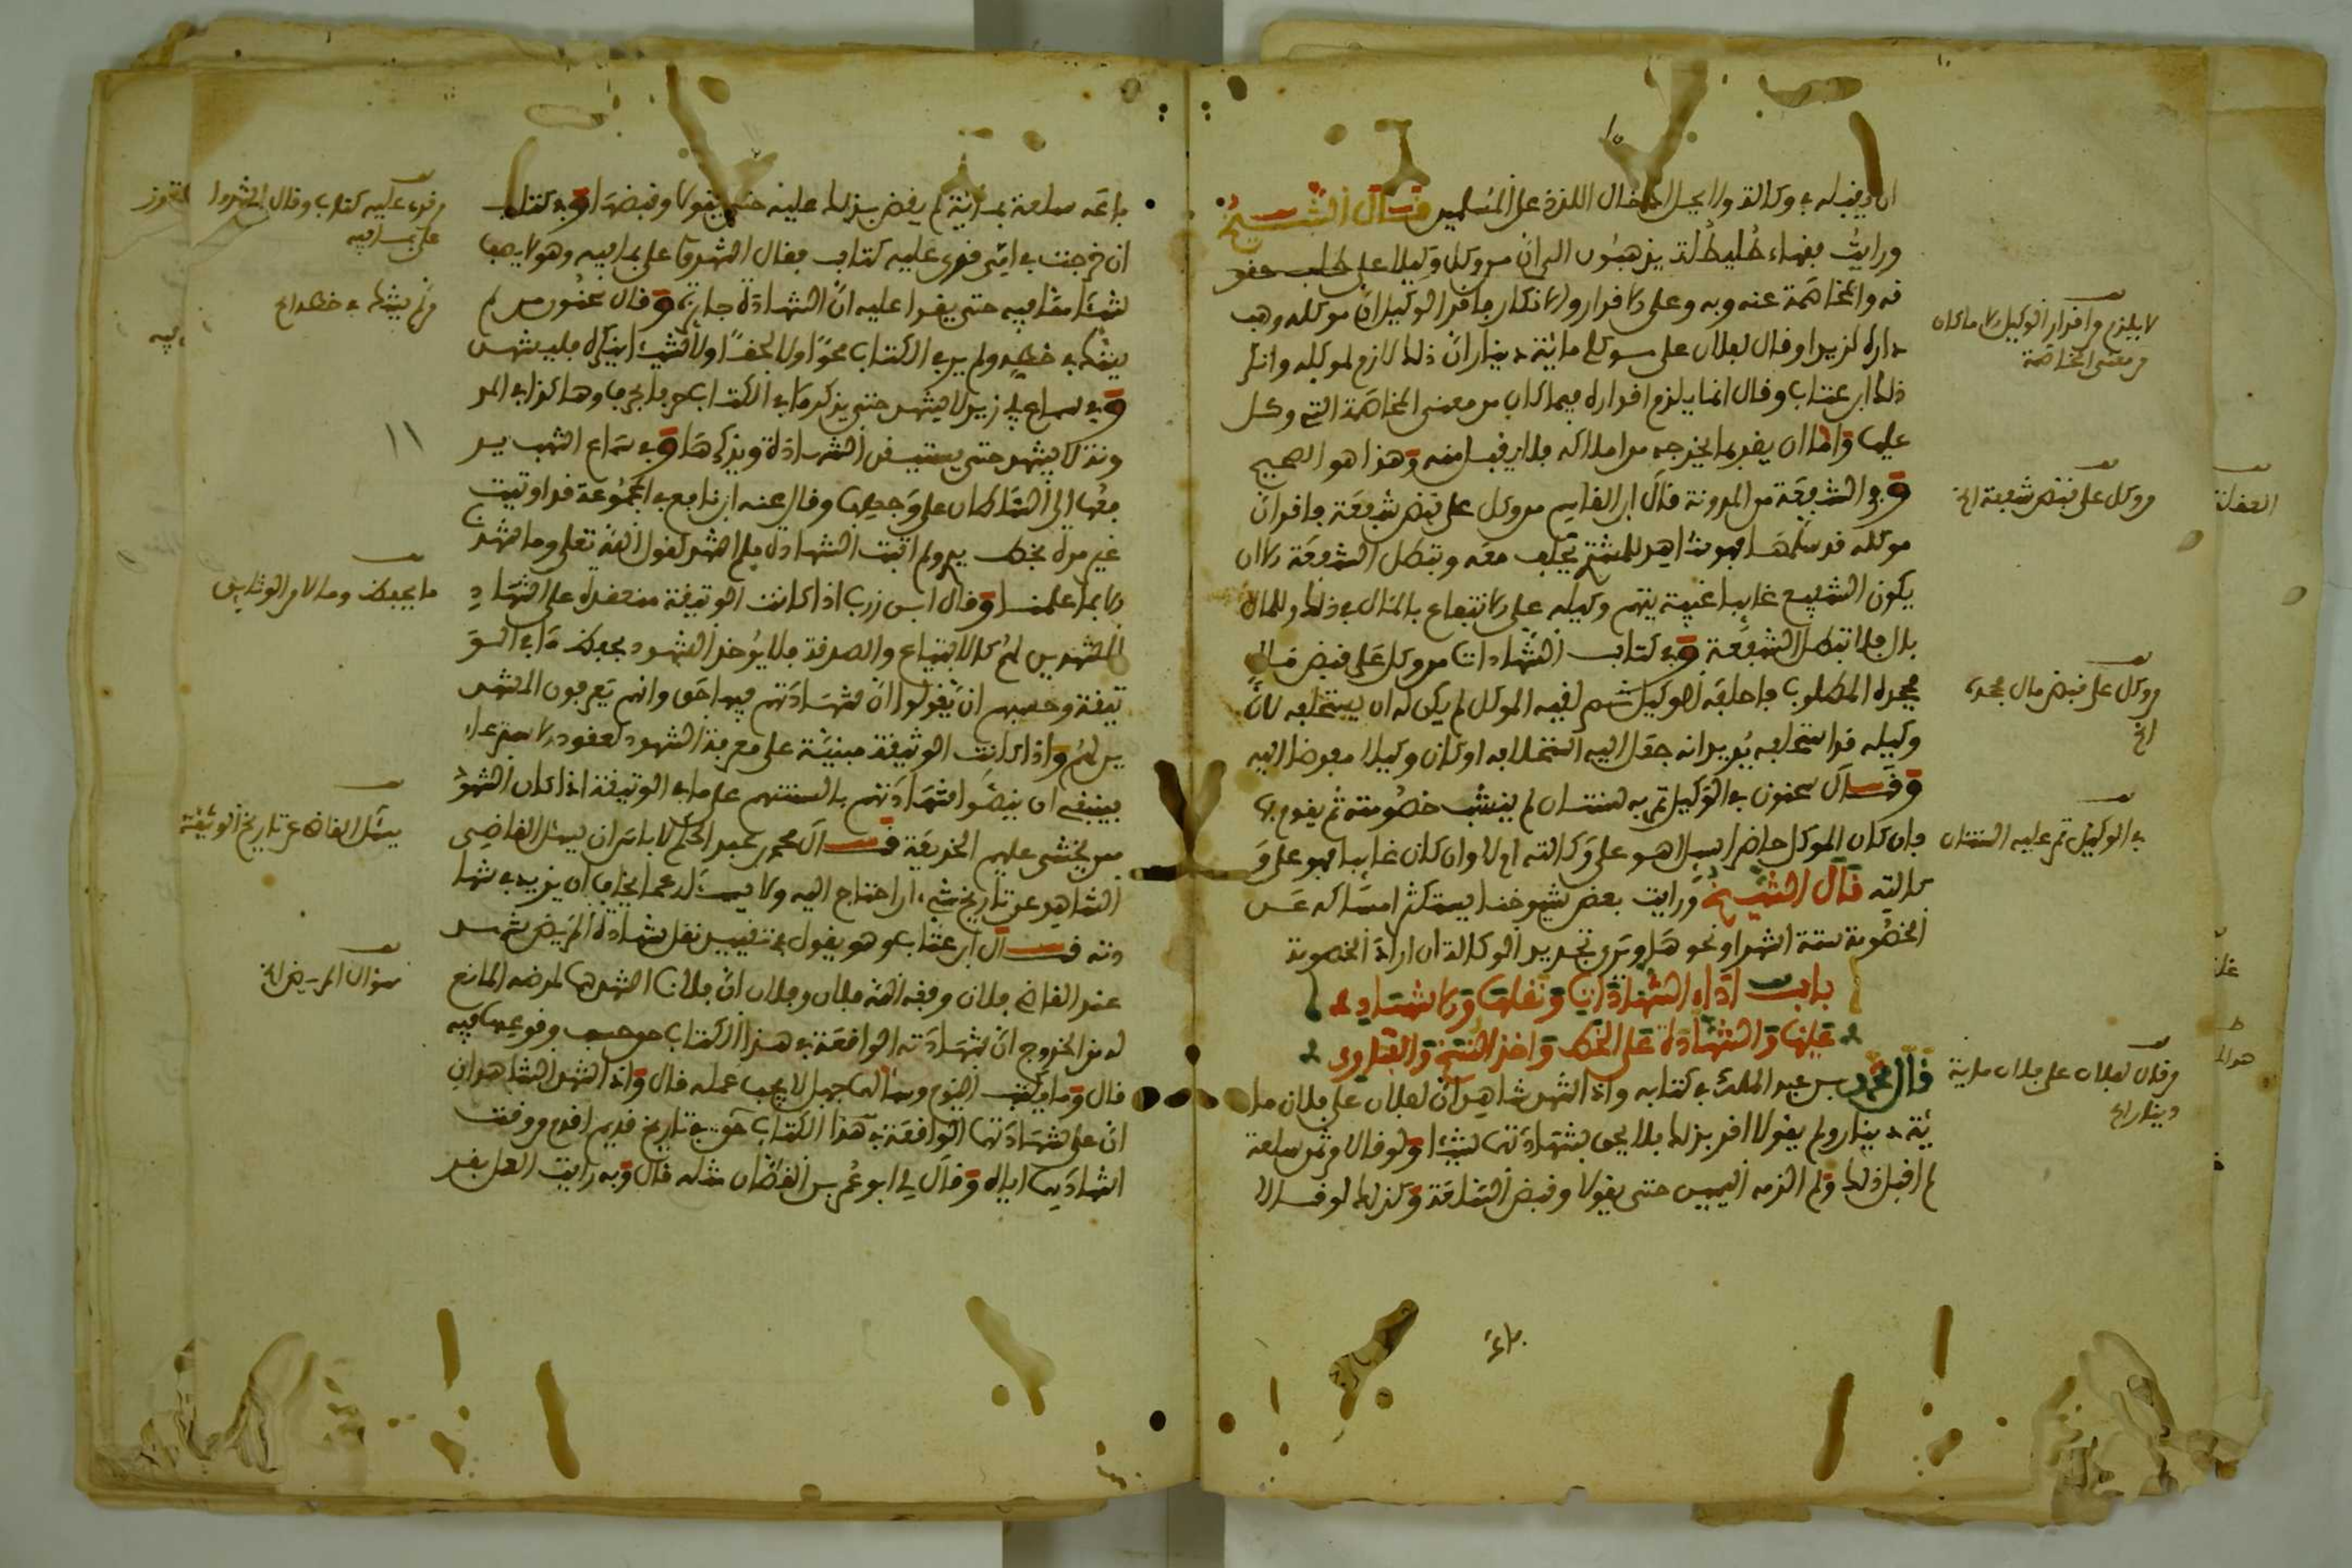 ان يقبله في وكالة ولا يحل ادخال اللدد على المسلمين قال الشيخ
ورأيت فقهاء طليطلة يذهبون الى ان من وكل وكيلا على طلب حقو
قه والمخاصمة عنه وبه وعلى الاقرار والانكار فاقر الوكيل ان موكله وهب
داره لزيد او قال لفلان على موكلي مائة دينار ان ذلك لازم لموكله وانكر
ذلك ابن عتاب وقال انما يلزم اقراره فيما كان من معنى المخاصمة التي وكل
عليها واما ان يقر بما يخرجه من املاكه فلا يقبل منه وهذا هو الصحيح
وفي الشفعة من المدونة قال ابن القاسم من وكل على قبض شفعة فاقر ان
موكله قد سلمها فهو شاهد للمشتري يحلف معه وتبطل الشفعة الا ان
يكون الشفيع غايبا غيبة يتهم وكيله على الانتفاع بالمال في ذلك وللمال
بال فلا تبطل الشفعة وفي كتاب الشهادات من وكل على قبض مال
فجحده المطلوب فاحلفه الوكيل ثم لقيه الموكل لم يكن له ان يستحلفه لان
وكيله قد استحلفه يريد انه جعل اليه استحلافه او كان وكيلا مفوضا اليه
وقال سحنون في الوكيل تمر به سنتان لم ينشب خصومته ثم يقوم بها
فان كان الموكل حاضرا سئل اهو على وكالته ام لا وان كان غايبا فهو على و
كالته قال الشيخ ورأيت بعض شيوخنا يستكثر امساكه عن
الخصومة ستة اشهر او نحوها ويرى تجديد الوكالة ان اراد الخصومة
باب اداء الشهادات ونقلها والاشهاد
عليها والشهادة على الخط واخذ النسخ والفتاوى
قال محمد بن عبد الملك في كتابه واذا اشهد شاهدان لفلان على فلان ما
ئة دينار ولم يقولا اقر بذلك فلا يحق بشهادتهما شيئا ولو قالا من ثمن سلعة
لم اقبل ذلك ولم الزمه اليمين حتى يقولا وقبض السلعة وكذلك لو قالا
لا يلزم من اقرار الوكيل الا ما كان
من معنى المخاصمة
من وكل على قبض شفعة الخ
من وكل على قبض مال فجحده
الخ
في الوكيل تمر عليه السنتان
من قال لفلان على فلان ماية
دينار الخ
باعه سلعة بماية لم يقض بذلك عليه حتى يقولا وقبضها وفي كتاب
ان فرجت في امي قرئ عليه كتاب فقال اشهدوا علي بما فيه وهو لا يعرف
شيئا مما فيه حتى يقرا عليه ان الشهادة جايزة وقال سحنون من لم
يشك في خطه ولم ير في الكتاب محوا ولا لحقا ولا شيئا ينكره فليشهد
وفي سماع ابي زيد لا يشهد حتى يذكر ما في الكتاب حرفا حرفا وهكذا في المد
ونة لا يشهد حتى يستيقن الشهادة ويذكرها وفي سماع اشهب ير
فعها الى السلطان على وجهها وقال عنه ابن نافع في المجموعة قد اوتيت
غير مرة بخط يدي ولم اثبت الشهادة فلم اشهد لقول الله تعلى وما شهدنا
الا بما علمنا وقال ابن زرب اذا كانت الوثيقة منعقدة على اشهاد
المشهدين لهم كالابتياع والصدقة فلا يؤخذ الشهود بحفظ ما في الو
ثيقة وحسبهم ان يقولوا ان شهادتهم فيها حق وانهم يعرفون المشهد
ين لهم واذا كانت الوثيقة مبنية على معرفة الشهود كعقود الاسترعاء
فينبغي ان ينصوا شهادتهم بالسنتهم على ما في الوثيقة اذا كان الشهود
ممن يخشى عليهم الخديعة قال محمد بن عبد الحكم لا باس ان يسئل القاضي
الشاهد عن تاريخ شيء ان احتاج اليه ولا يسئله عما يخاف ان يزيد في شها
دته قال ابن عتاب وهو يقول في تقييد نقل شهادة المريض شهد
عند القاضي فلان وفقه الله فلان وفلان ان فلانا اشهدهما لمرضه المانع
له من الخروج ان شهادته الواقعة في هذا الكتاب حق وقوعها فيه
قال وما يكتب اليوم وسالهما جهل لا يجب عمله قال واذا اشهد الشاهدان
ان على شهادتهما الواقعة في هذا الكتاب حق في تاريخ قديم اقدم من وقت
اشهادهما اياه وقال لي ابو عمر بن القطان مثله قال وبه رايت العمل بقر
من قرئ عليه كتاب وقال اشهدوا
علي بما فيه
من لم يشك في خطه الخ
ما يحفظ وما لا من الوثايق
يسئل القاضي عن تاريخ الوثيقة
سؤال المريض الخ
١١